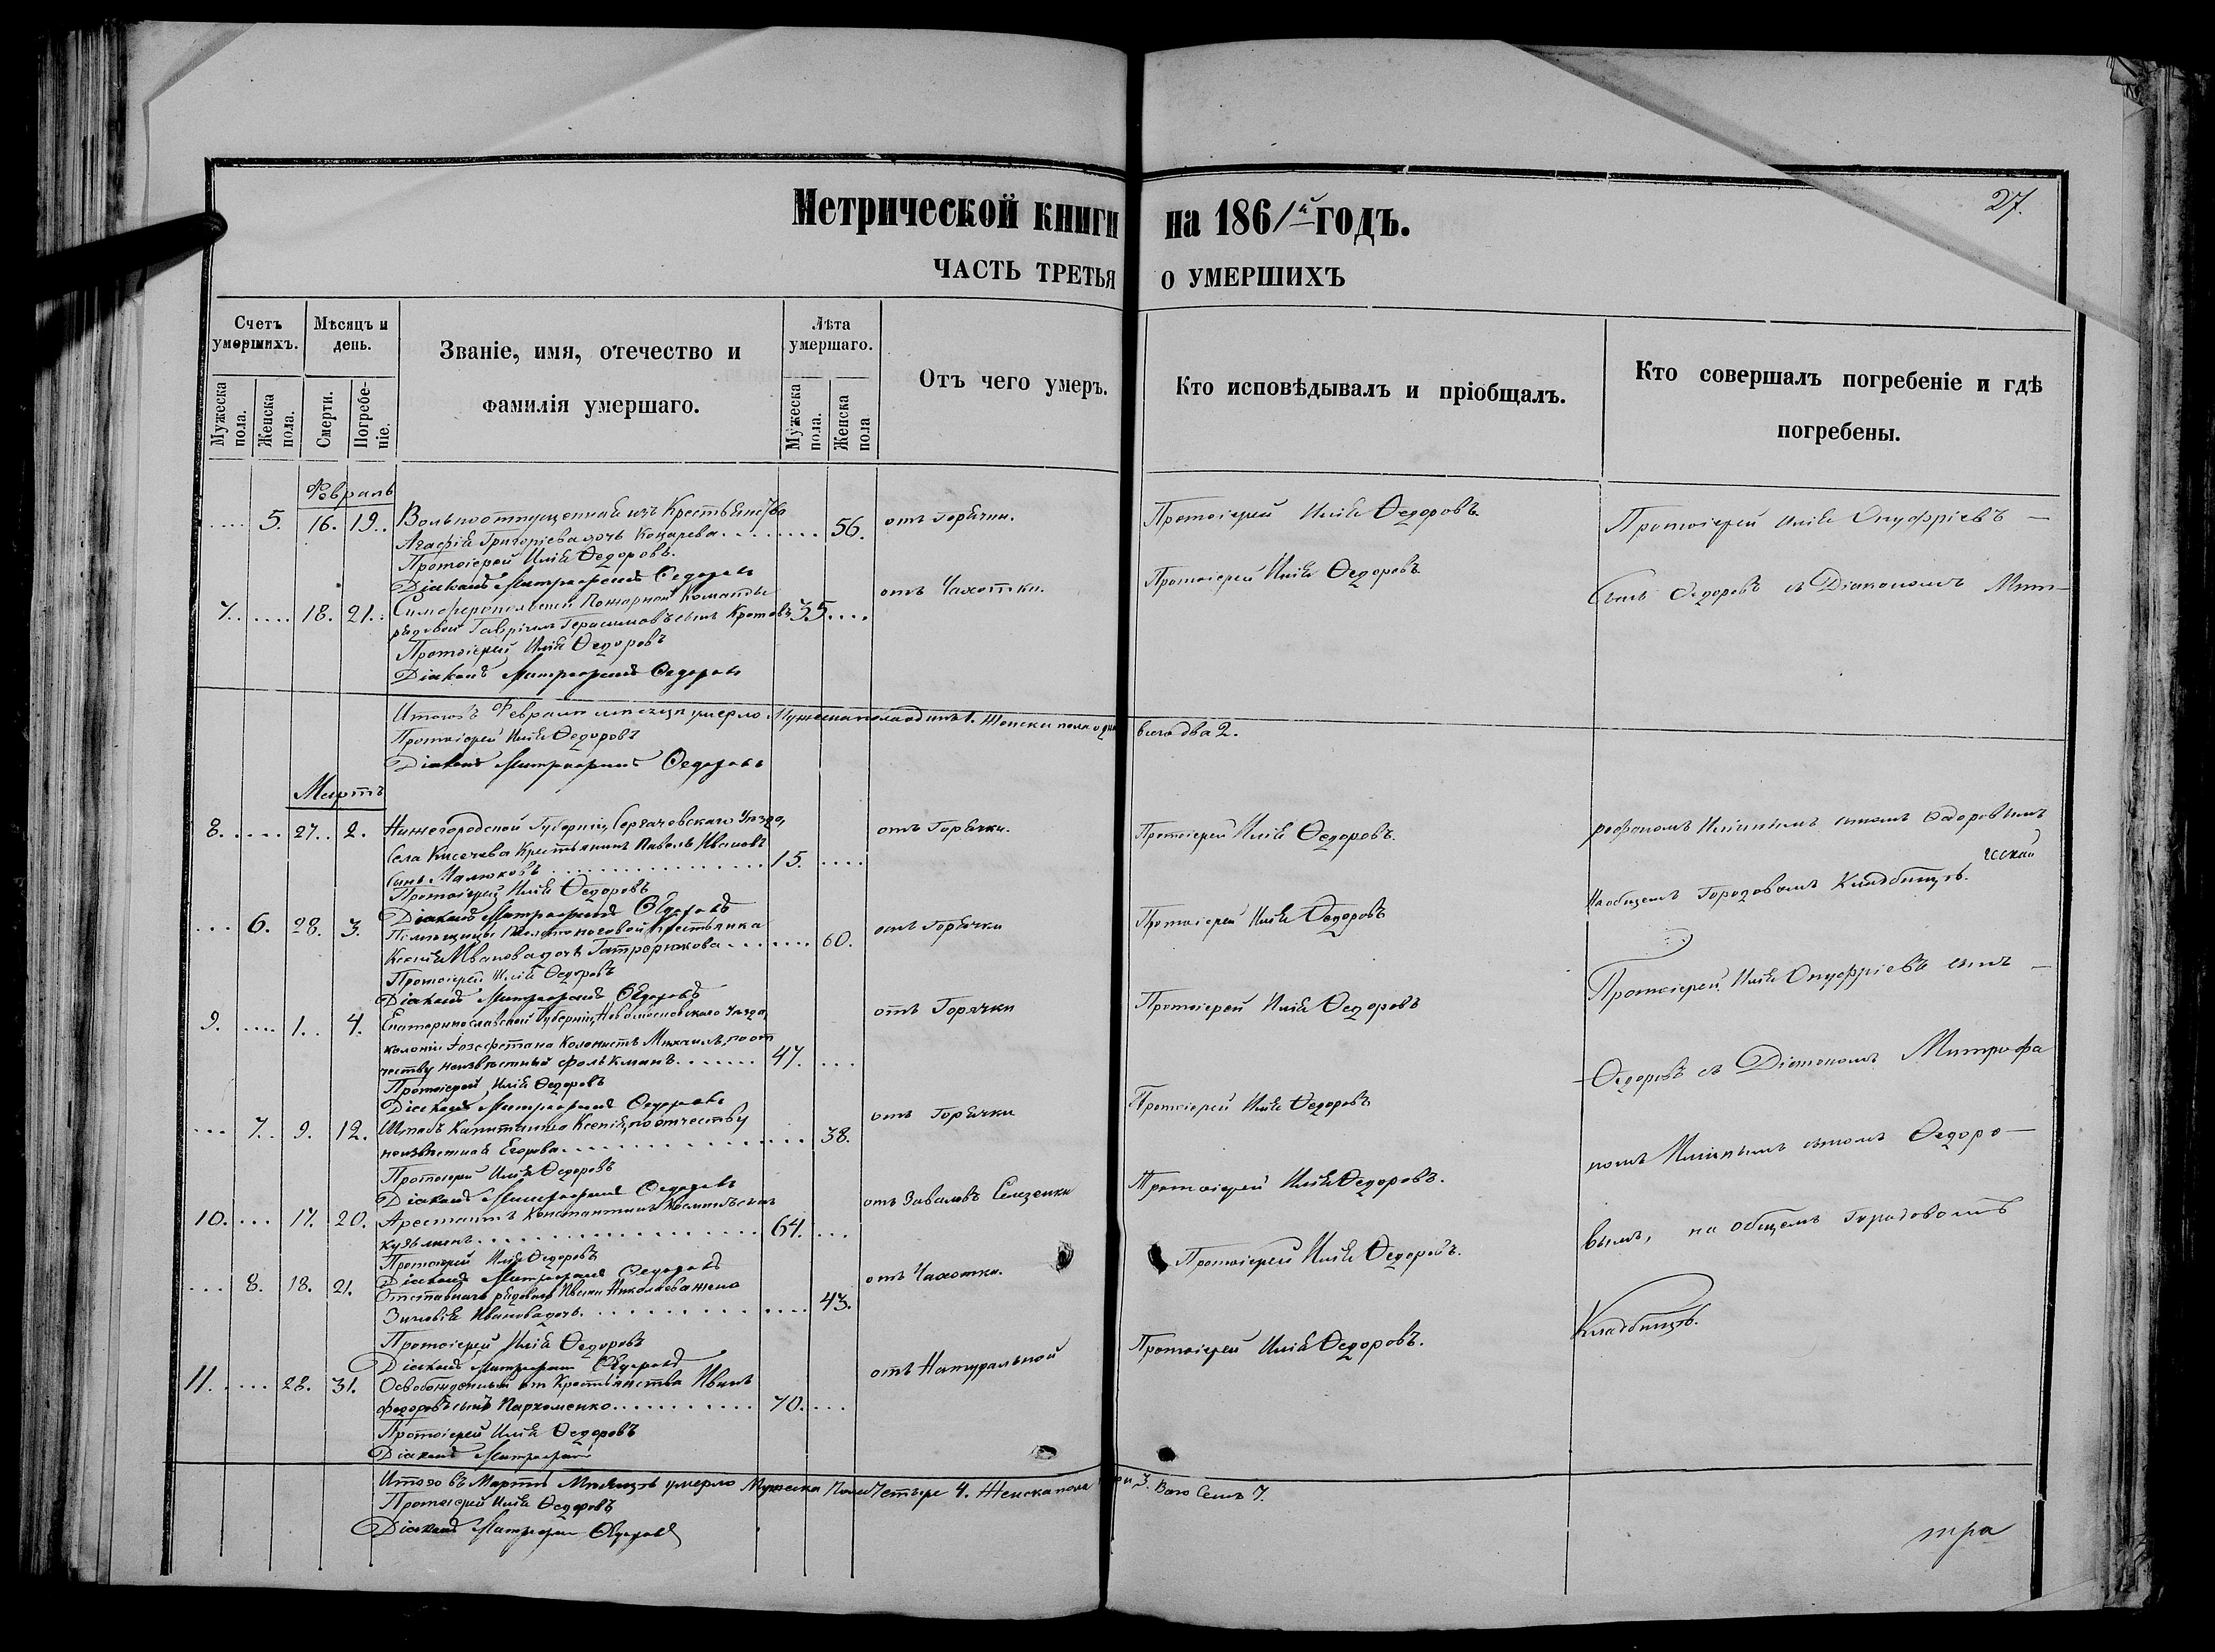 27.
Метрической книги на 1861й годъ.
ЧАСТЬ ТРЕТЬЯ О УМЕРШИХЪ
Счетъ умершихъ.
Мѣсяцъ и день.
Званіе, имя, отечество и фамилія умершаго.
Лѣта умершаго.
Отъ чего умеръ.
Кто исповѣдывалъ и пріобщалъ.
Кто совершалъ погребеніе и гдѣ погребены.
Мужеска пола.
Женска пола.
Смерти.
Погребеніе.
Мужеска пола.
Женска пола
Февраль
5. 16. 19. Вольноотпущенная изъ Крестьянства
Агафія Григоріева дочь Комарева 56. отъ Горячки. Протоіерей Илія Ѳедоровъ. Протоіерей Илія Онуфріевъ
Протоіерей Илія Ѳедоровъ.
Діаконъ Митрофанъ Ѳедоровъ
7. 18. 21. Симферопольской Пожарной Команды
рядовой Гавріилъ Герасимовъ сынъ Кротовъ 35 отъ Чахотки. Протоіерей Илія Ѳедоровъ Сынъ Ѳедоровъ съ Діакономъ Мит-
Протоіерей Илія Ѳедоровъ
Діаконъ Митрофанъ Ѳедоровъ
Итого въ Февралѣ мѣсяцѣ умерло Мужеска пола одинъ 1. Женска пола одна всего два 2.
Протоіерей Илія Ѳедоровъ
Діаконъ Митрофанъ Ѳедоровъ
Мартъ
8. 27. 2. Нижегородской Губерніи, Сергачовскаго Уѣзда,
Села Кисечева Крестьянинъ Павелъ Ивановъ
Сынъ Малюковъ 15. отъ Горячки. Протоіерей Илія Ѳедоровъ. рофаномъ Иліинымъ сыномъ Ѳедоровымъ
Протоіерей Илія Ѳедоровъ
Діаконъ Митрофанъ Ѳедоровъ
На общемъ Городовомъ Кладбищѣ.
6. 28. 3. Помѣщицы Крестьянка
Ксенія Иванова дочь 60. отъ Горячки Протоіерей Илія Ѳедоровъ
Протоіерей Илія Ѳедоровъ
Діаконъ Митрофанъ Ѳедоровъ
Протоіерей Илія Онуфріевъ сынъ
9. 1. 4. Екатеринославской Губерніи, Новомосковскаго Уѣзда,
колоніи Іозефстана Колонистъ Михаилъ, по от
честву неизвѣстный Фолькманъ 47. отъ Горячки Протоіерей Илія Ѳедоровъ
Протоіерей Илія Ѳедоровъ
Діаконъ Митрофанъ Ѳедоровъ
Ѳедоровъ съ Діакономъ Митрофа
7. 9. 12. Штабъ Капитанша Ксенія, по отчеству
неизвѣстная Егорова 38. отъ Горячки Протоіерей Илія Ѳедоровъ
Протоіерей Илія Ѳедоровъ
Діаконъ Митрофанъ Ѳедоровъ
номъ Иліинымъ сыномъ Ѳедоро-
10. 17. 20. Арестантъ Константинъ
64. отъ Заваловъ Селезенки Протоіерей Илія Ѳедоровъ.
Протоіерей Илія Ѳедоровъ
Діаконъ Митрофанъ Ѳедоровъ
вымъ, на общемъ Городовомъ
8. 18. 21. Отставного рядового Ивана Николаева жена
Зиновія Иванова дочь 43. отъ Чахотки. Протоіерей Илія Ѳедоровъ.
Протоіерей Илія Ѳедоровъ
Діаконъ Митрофанъ Ѳедоровъ
Кладбищѣ.
11. 28. 31. Освобожденный отъ Крестьянства Иванъ
Федоровъ сынъ Пархоменко 70. отъ Натуральной Протоіерей Илія Ѳедоровъ.
Протоіерей Илія Ѳедоровъ
Діаконъ Митрофанъ
Итого въ Мартѣ Мѣсяцѣ умерло Мужеска Пола Четыре 4. Женска пола три 3. Всего Семь 7.
Протоіерей Илія Ѳедоровъ
Діаконъ Митрофанъ Ѳедоровъ
тра